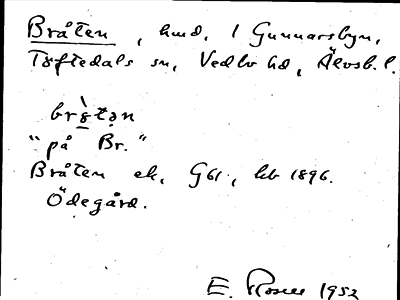 Bråten, hmd. 1 Gunnarsbyn,
Töftedals sn, Vedbo hd, Älvsb. l.
"på Br."
Bråten ek, G61, hb 1896.
Ödegård.
E. Rosell 1952